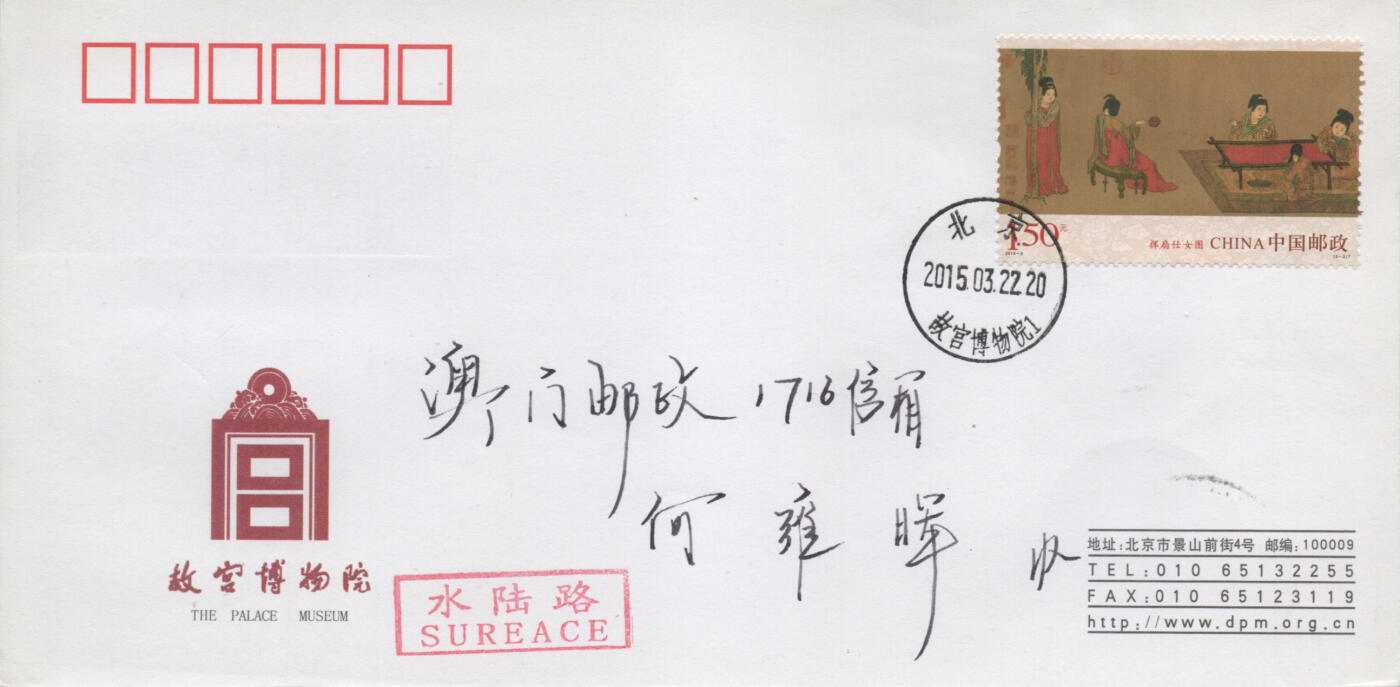 1.50元
挥扇仕女图 CHINA 中国邮政
北京
2015.03.22.20
故宫博物院1
澳门邮政1716信箱
何雍晖 收
故宫博物院
THE PALACE MUSEUM
水陆路
SUREACE
地址:北京市景山前街4号 邮编:100009
TEL:010 65132255
FAX:010 65123119
http://www.dpm.org.cn